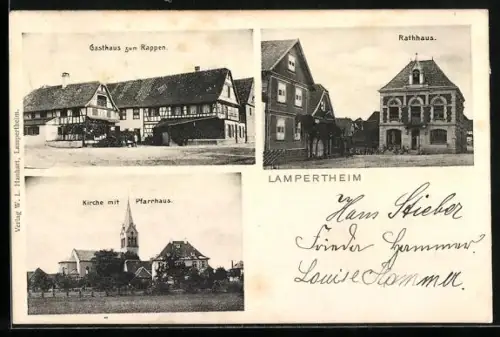 Gasthaus zum Rappen.
Rathhaus.
LAMPERTHEIM
Kirche mit Pfarrhaus.
Verlag W. L. Hauhart, Lampertheim.
Hans Stieber
Frieda Hammer.
Louise Hammer.